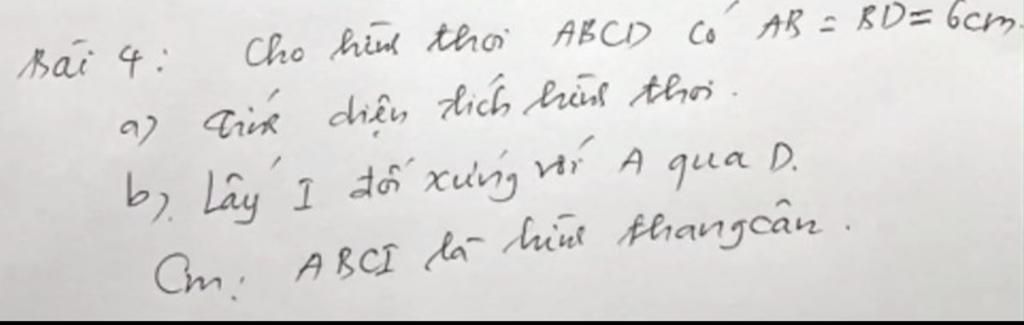 Bài 4: Cho hình thoi ABCD có AB = BD = 6cm.
a) Tính diện tích hình thoi.
b). Lấy I đối xứng với A qua D.
Cm: ABCI là hình thang cân.